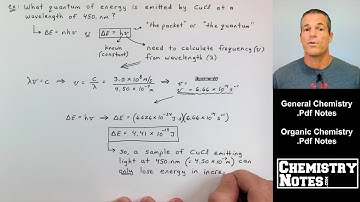 ex: What quantum of energy is emitted by CuCl at a
wavelength of 450. nm?
"the packet" or "the quantum"
↳ ΔE = nhν or ΔE = hν
known
(constant)
need to calculate frequency (ν)
from wavelength (λ)
λν = c ⇒ ν = c/λ = 3.0 × 10⁸ m/s / 4.50 × 10⁻⁷ m ⇒ ν = 6.66 × 10¹⁴ s⁻¹
ΔE = hν ⇒ ΔE = (6.626 × 10⁻³⁴ J·s)(6.66 × 10¹⁴ s⁻¹)
ΔE = 4.41 × 10⁻¹⁹ J
↳ So, a sample of CuCl emitting
light at 450. nm (= 4.50 × 10⁻⁷ m) can
only lose energy in incre
General Chemistry
.Pdf Notes
Organic Chemistry
.Pdf Notes
CHEMISTRY
NOTES.COM